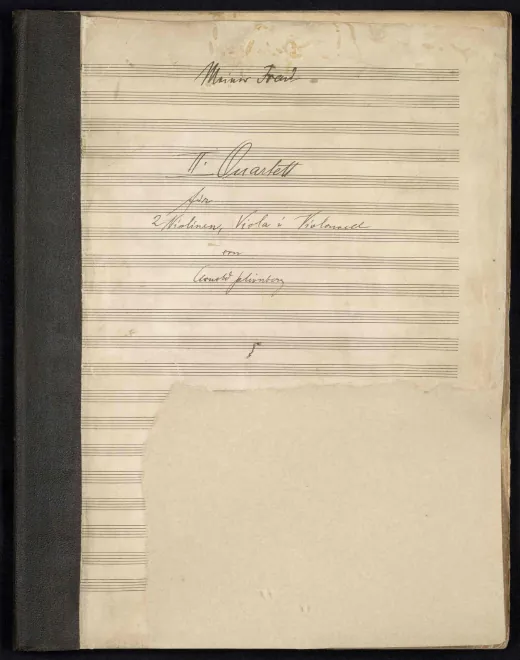 Meiner Frau
II. Quartett
für
2 Violinen, Viola u Violoncell
von
Arnold Schönberg